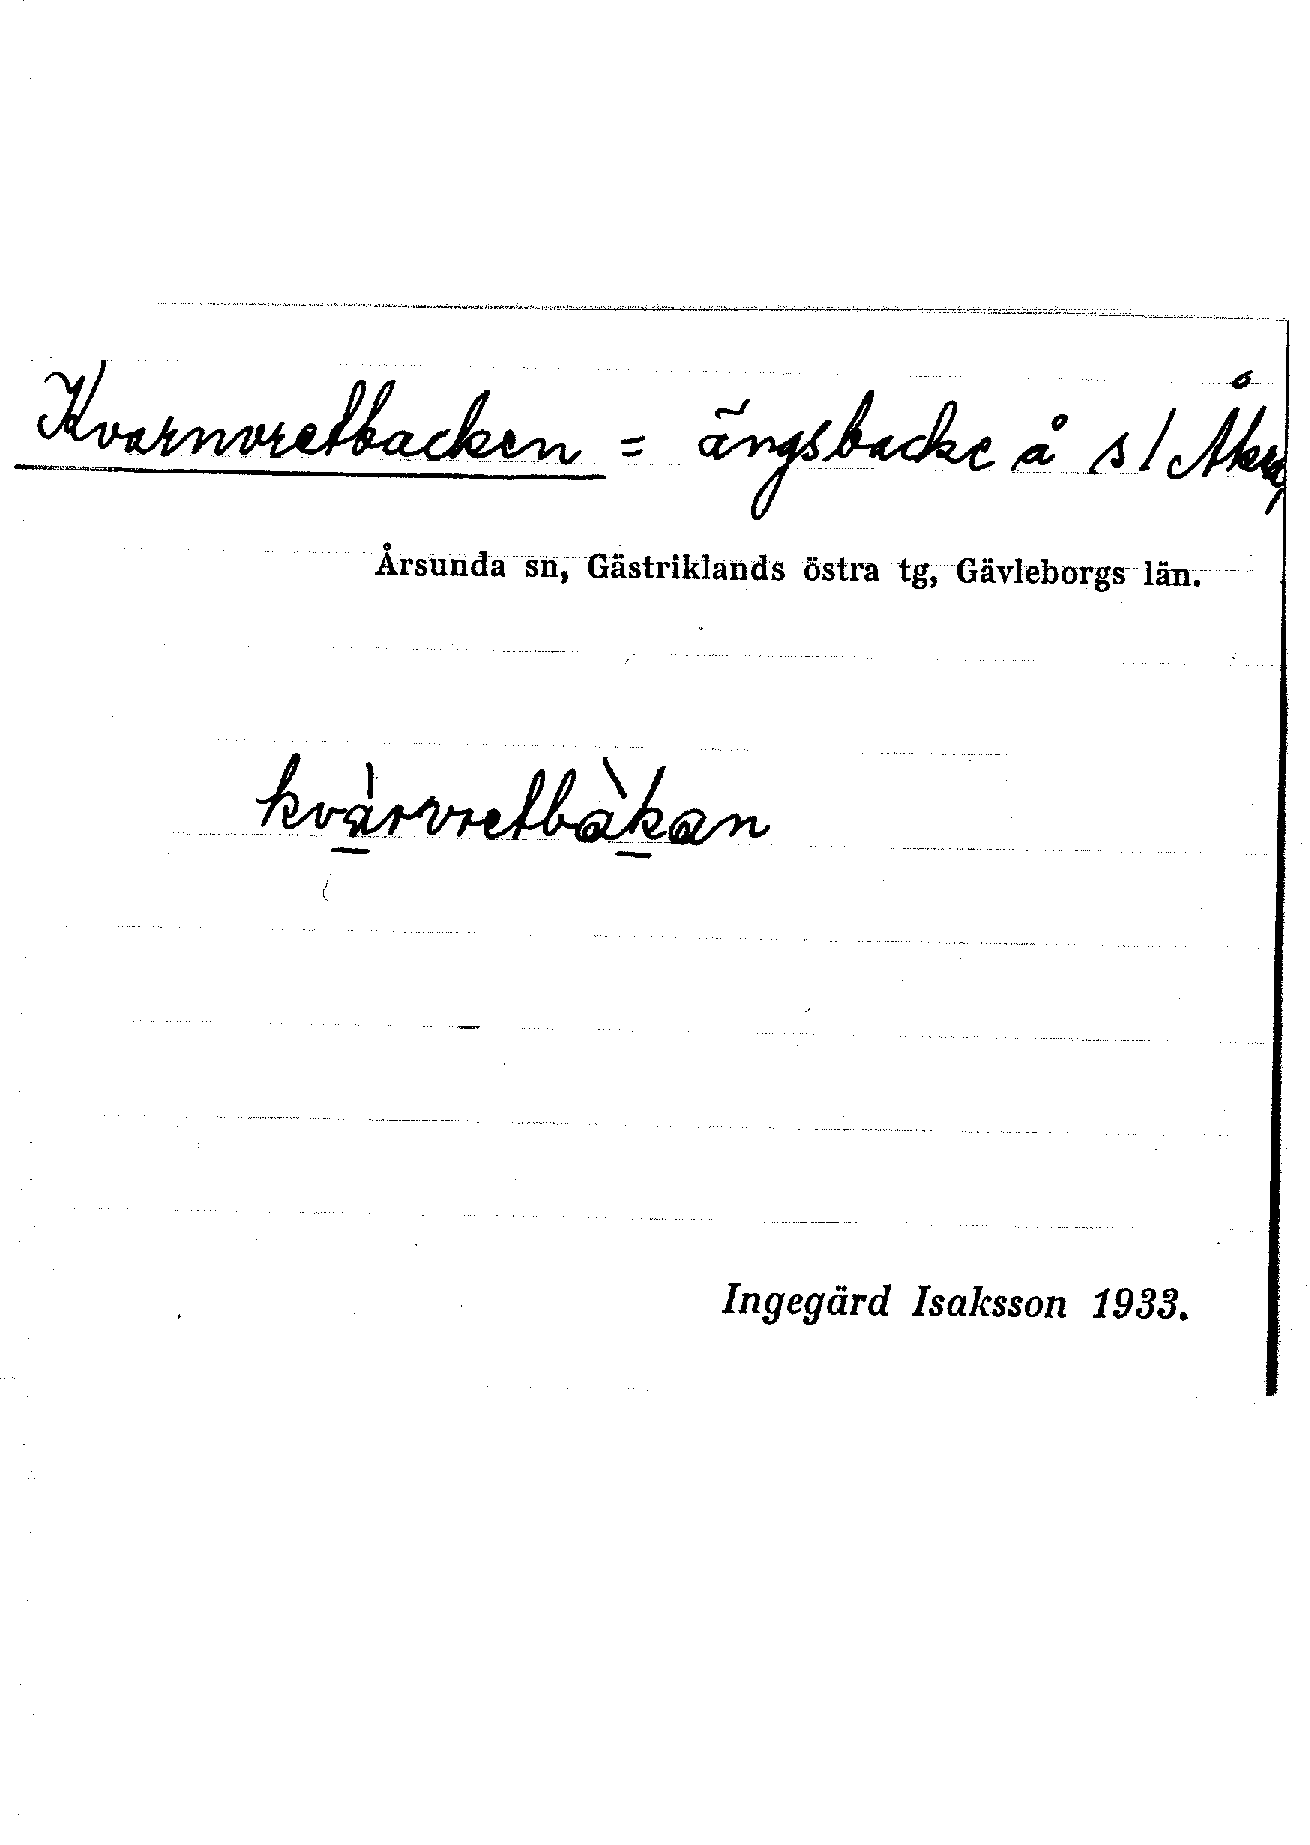 Kvarnvretbacken = ängsbacke å s/
Årsunda sn, Gästriklands östra tg, Gävleborgs län.
kvàrvretbàkan
Ingegärd Isaksson 1933.